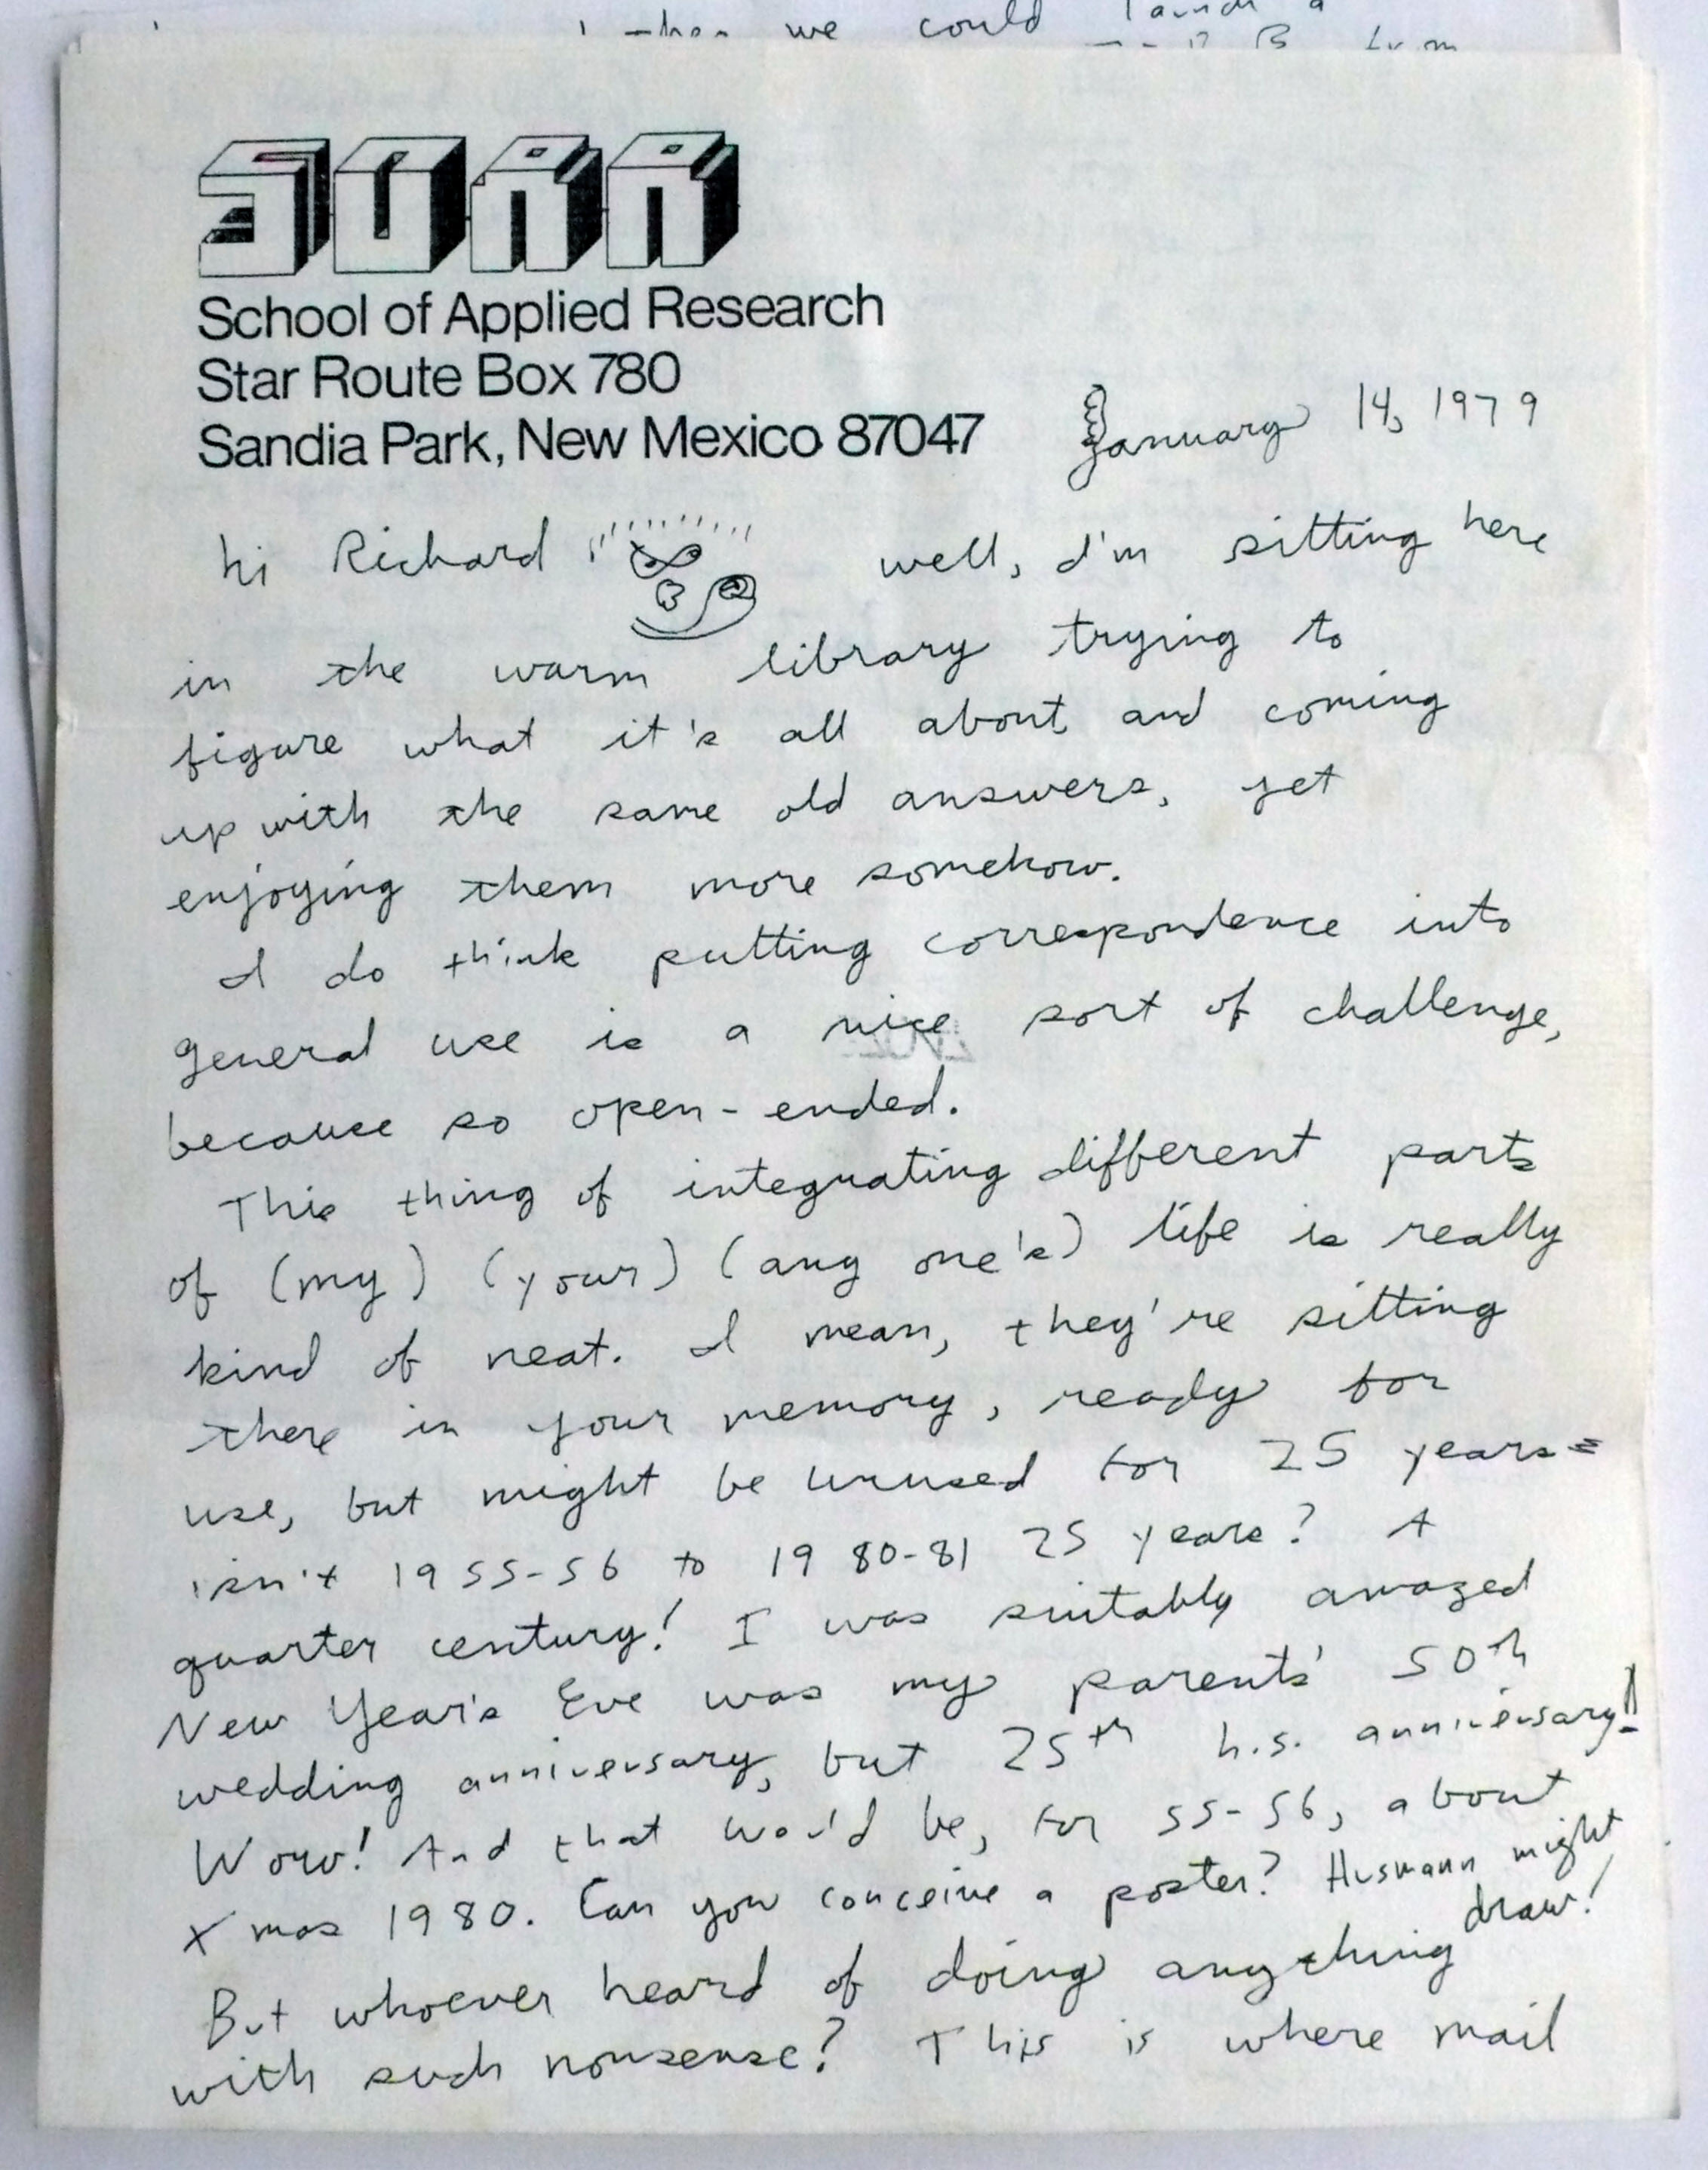 when we could launch a
from
SOAR
School of Applied Research
Star Route Box 780
Sandia Park, New Mexico 87047
January 14, 1979
hi Richard well, I'm sitting here
in the warm library trying to
figure what it's all about and coming
up with the same old answers, yet
enjoying them more somehow.
I do think putting correspondence into
general use is a nice sort of challenge,
because so open-ended.
This thing of integrating different parts
of (my) (your) (any one's) life is really
kind of neat. I mean, they're sitting
there in your memory, ready for
use, but might be unused for 25 years=
isn't 1955-56 to 1980-81 25 years? A
quarter century! I was suitably amazed
New Year's Eve was my parents' 50th
wedding anniversary, but 25th h.s. anniversary!!
Wow! And that would be, for 55-56, about
Xmas 1980. Can you conceive a poster? Husmann might
draw!
But whoever heard of doing anything
with such nonsense? This is where mail